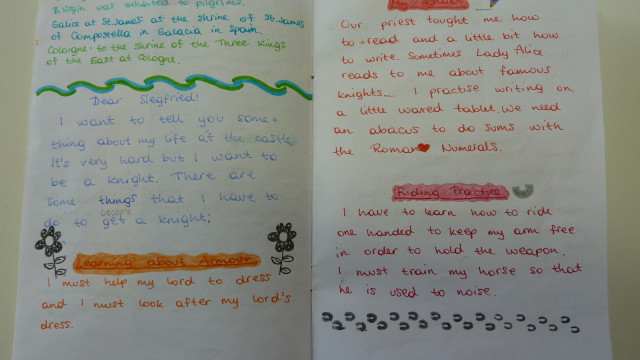 Religin was exhibited to pilgrims.
Galice at St. James at the shrine of St. James
of Compostella in Galacia in Spain.
Cologne: to the shrine of the Three Kings
of the East at Cologne.
Dear Siegfried!
I want to tell you some-
thing about my life at the castle.
It's very hard but I want to
be a knight. There are
some things that I have to
do to get a knight:
before
Learning about Armour
I must help my lord to dress
and I must look after my lord's
dress.
My School
Our priest tought me how
to read and a little bit how
to write. Sometimes Lady Alice
reads to me about famous
knights. I practise writing on
a little waxed tablet. We need
an abacus to do sums with
the Roman Numerals.
Riding Practice
I have to learn how to ride
one handed to keep my arm free
in order to hold the weapon.
I must train my horse so that
he is used to noise.